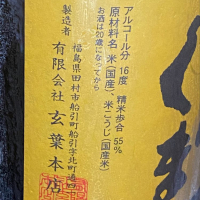 アルコール分 16度 精米歩合 55%
原材料名 米(国産)、米こうじ(国産米)
お酒は20歳になってから
製造者
福島県田村市船引町船引字北町通
有限会社 玄葉本店